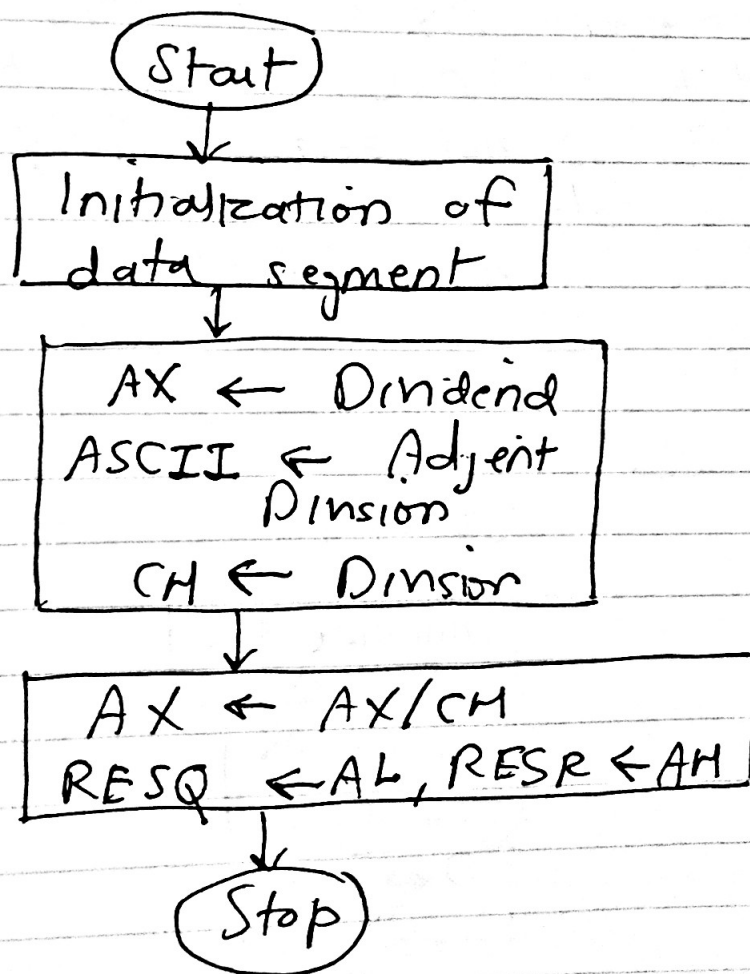 Start
Initialization of
data segment
AX ← Dividend
ASCII ← Adjent
Dinsion
CH ← Dinsior
AX ← AX/CH
RESQ ← AL, RESR ← AH
Stop